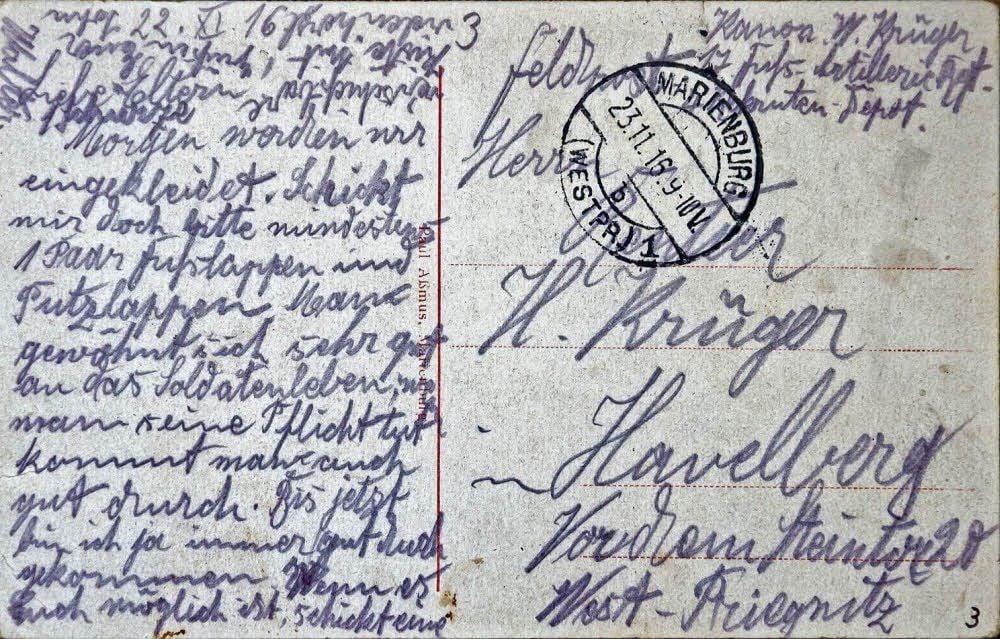 22. XI 16
3
Liebe Eltern,
Morgen werden wir
eingekleidet. Schickt
mir doch bitte mindestens
1 Paar Fußlappen und
Putzlappen. Man
gewöhnt sich sehr gut
an das Soldatenleben,
man seine Pflicht tut
kommt man auch
gut durch. Bis jetzt
bin ich ja immer gut durch
gekommen. Wenn es
Euch möglich ist, schickt eine
Paul Aßmus, Marienburg
Kanon. W. Krüger
Fuß-Artillerie
Depot.
MARIENBURG
23.11.16.9-10V.
(WESTPR.) 1
b
Herrn
H. Krüger
Havelberg
Vor dem Steintor 20
West-Priegnitz
3